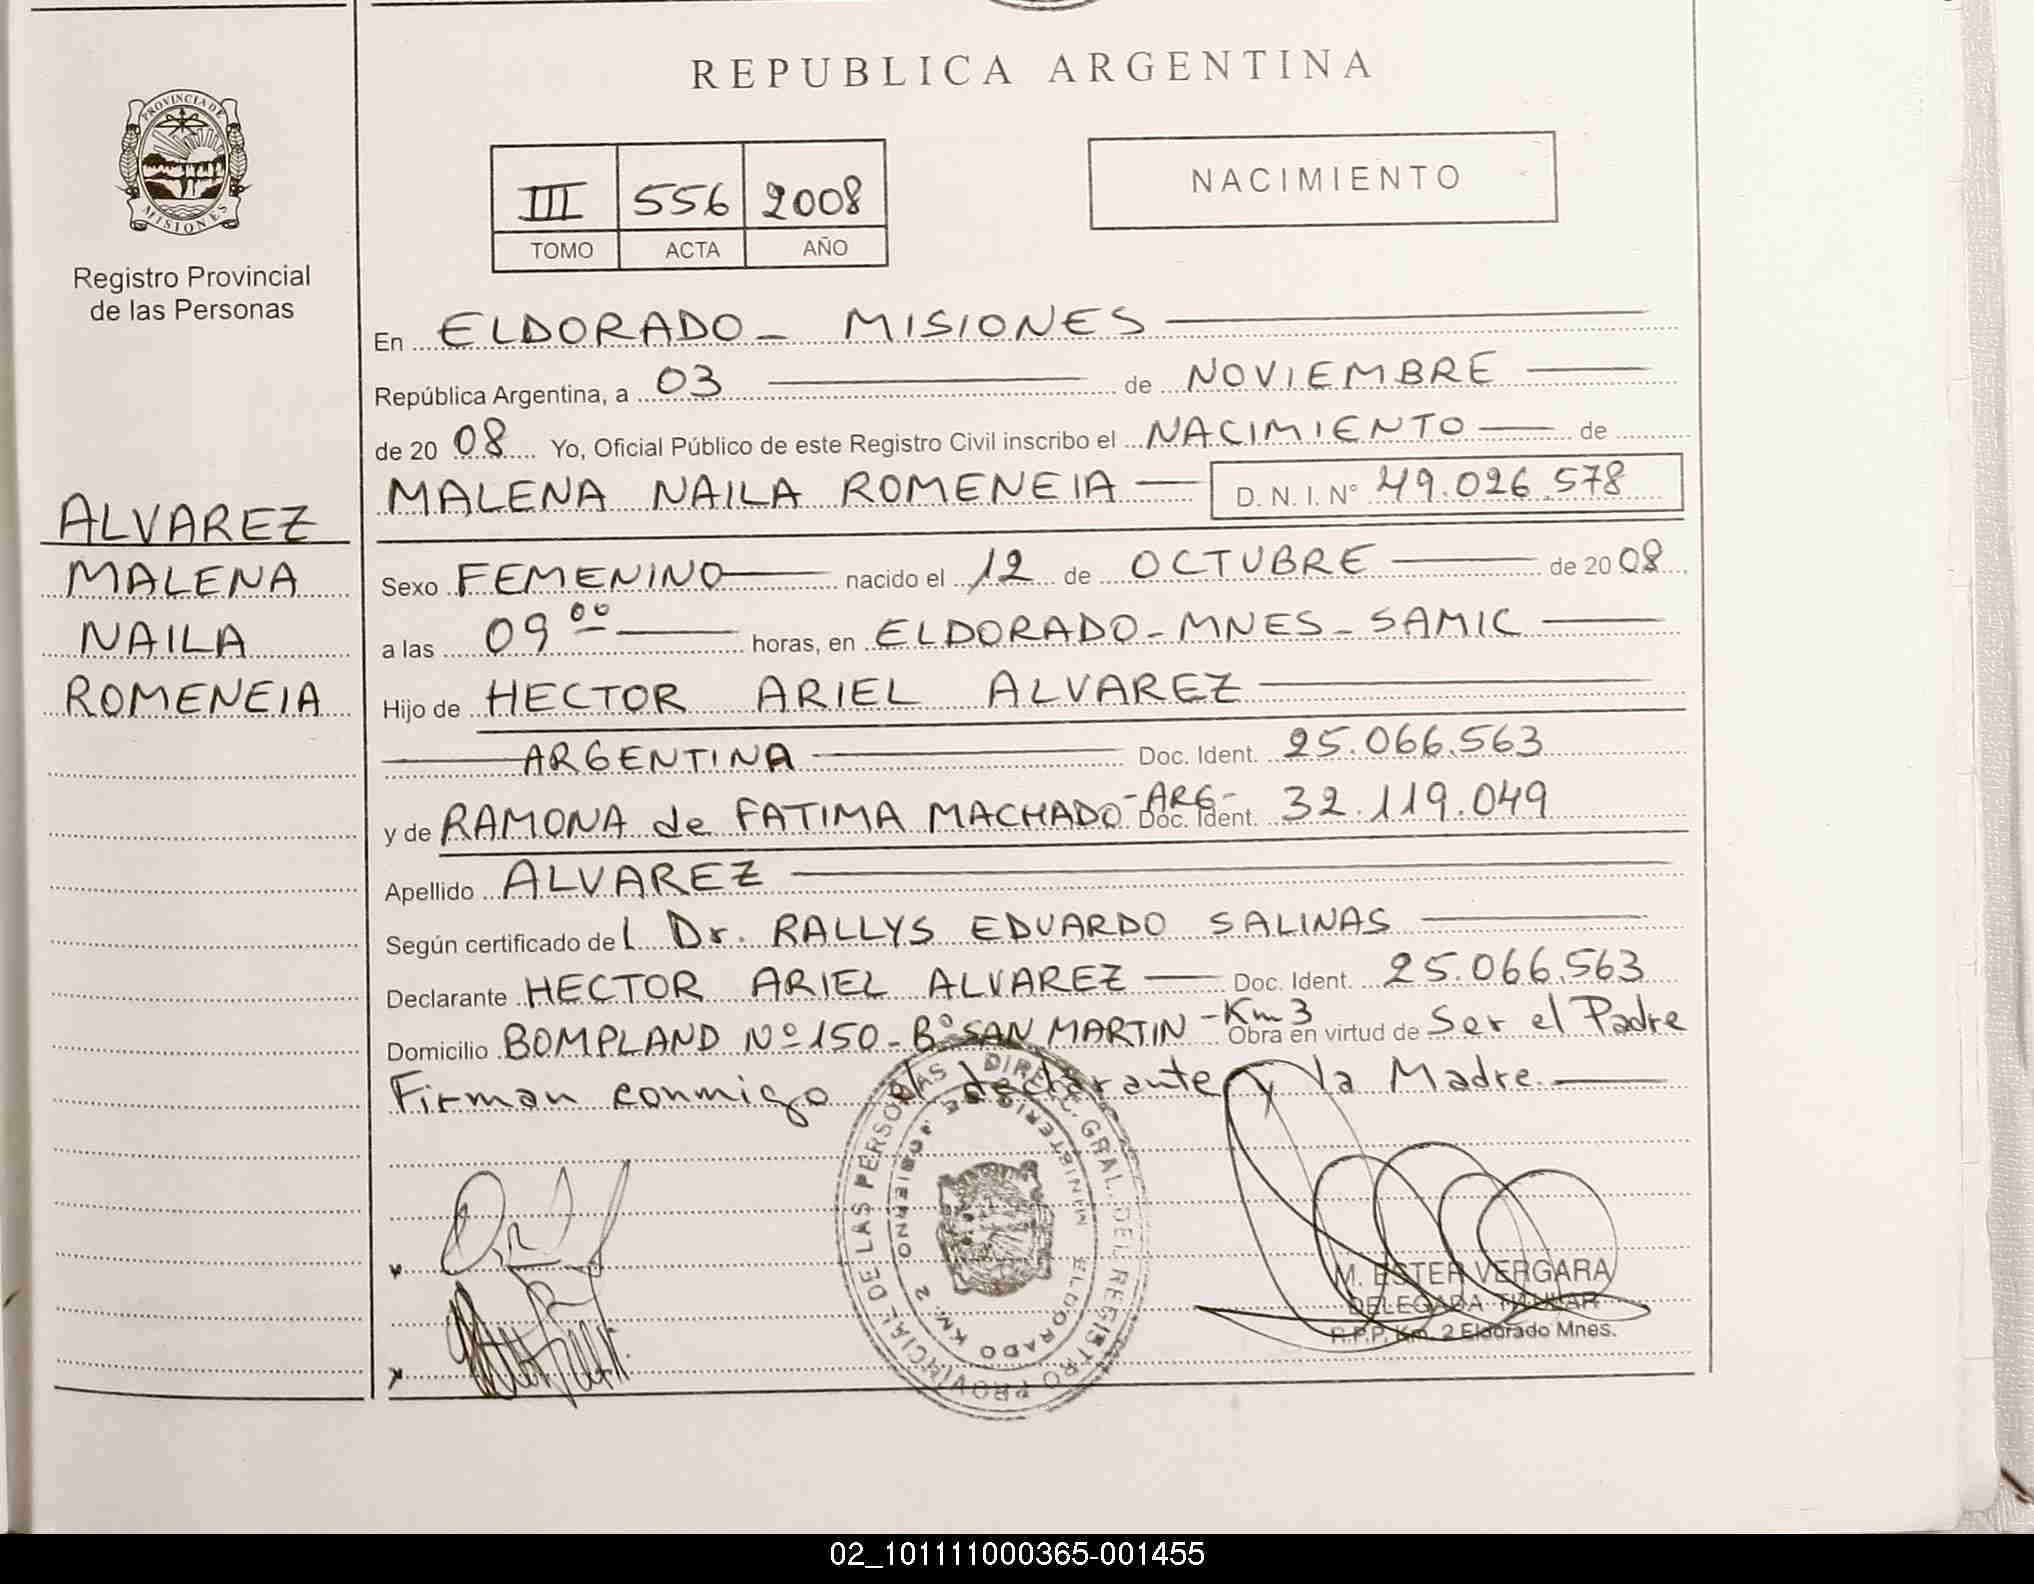 REPUBLICA ARGENTINA
PROVINCIA DE
MISIONES
Registro Provincial
de las Personas
III 556 2008
TOMO ACTA AÑO
NACIMIENTO
ALVAREZ
MALENA
NAILA
ROMENEIA
En ELDORADO - MISIONES
República Argentina, a 03 de NOVIEMBRE
de 20 08 Yo, Oficial Público de este Registro Civil inscribo el NACIMIENTO de
MALENA NAILA ROMENEIA D. N. I. N° 49.026.578
Sexo FEMENINO nacido el 12 de OCTUBRE de 20 08
a las 09 00 horas, en ELDORADO - MNES - SAMIC
Hijo de HECTOR ARIEL ALVAREZ
ARGENTINA Doc. Ident. 25.066.563
y de RAMONA de FATIMA MACHADO -ARG- Doc. Ident. 32.119.049
Apellido ALVAREZ
Según certificado del Dr. RALLYS EDUARDO SALINAS
Declarante HECTOR ARIEL ALVAREZ Doc. Ident. 25.066.563
Domicilio BOMPLAND Nº 150 - Bº SAN MARTIN - Km 3 Obra en virtud de Ser el Padre
Firman conmigo el declarante y la Madre.
DIREC. GRAL. DEL REGISTRO PROVINCIAL DE LAS PERSONAS
MINISTERIO DE GOBIERNO
ELDORADO KM. 2
M. ESTER VERGARA
DELEGADA TITULAR
R.P.P. Km. 2 Eldorado Mnes.
02_101111000365-001455